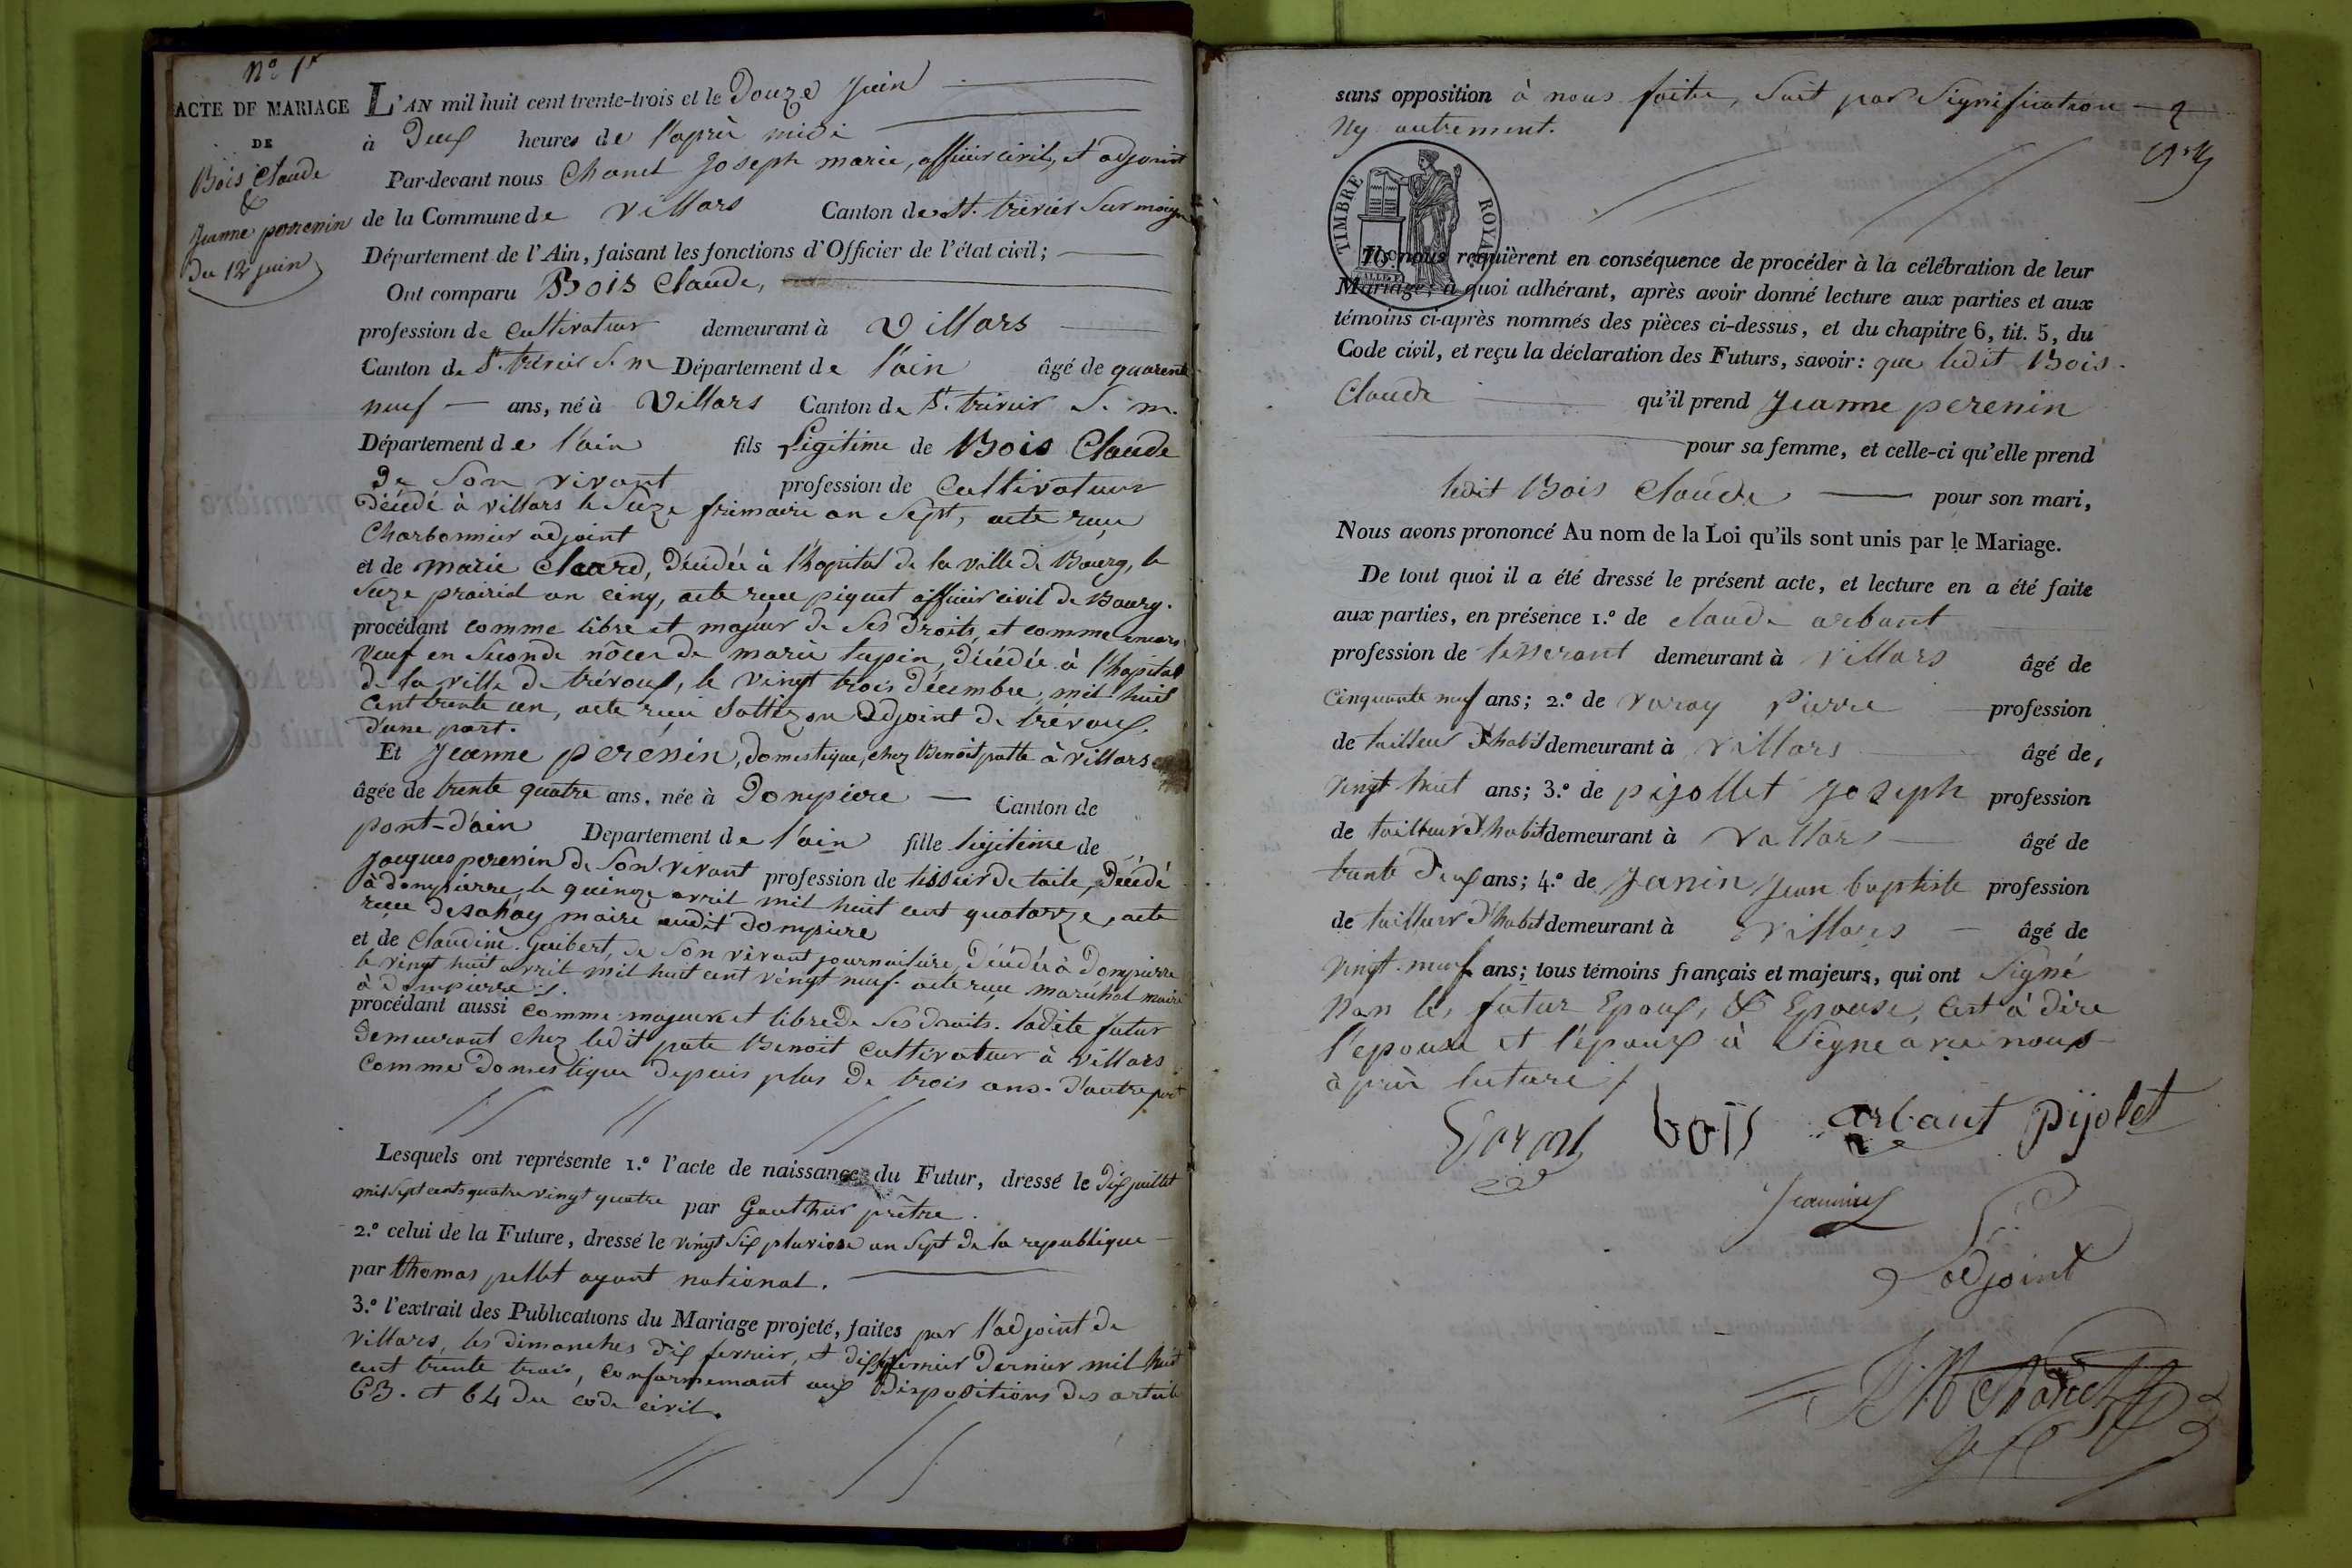 N° 1er
ACTE DE MARIAGE
DE
Bois Claude
&
Jeanne perrenin
du 12 juin
L'AN mil huit cent trente-trois et le Douze Juin
à Deux heures de l'après midi
Par-devant nous Chanel Joseph marie, officier civil, et adjoint
de la Commune de Villars Canton de St. trivier Sur moign
Département de l'Ain, faisant les fonctions d'Officier de l'état civil;
Ont comparu Bois Claude,
profession de cultivateur demeurant à Villars
Canton de St. trivier S. m Département de l'ain âgé de quarente
neuf ans, né à Villars Canton de St. trivier S. m.
Département de l'ain fils Légitime de Bois Claude
De Son vivant profession de Cultivateur
Décédé à villars le Seize frimaire an Sept, acte reçu
Charbonnier adjoint
et de marie Cluard, Décédée à l'hopital de la ville de Bourg, le
Seize prairial an cinq, acte reçu piquet officier civil de Bourg.
procédant comme libre et majeur de Ses Droits, et comme encore
veuf en Seconde nôces de marie tupin, Décédée à l'hopital
de la ville de trévoux, le vingt trois Décembre mil huit
cent trente un, acte reçu Sottizon adjoint de trévoux,
D'une part.
Et Jeanne perénin, domestique, chez Benoit patte à villars
âgée de trente quatre ans, née à Dompierre Canton de
pont-d'ain Departement de l'ain fille légitime de
Jacques perenin de Son vivant profession de tissier de toile, Décédé
à dompierre, le quinze avril mil huit cent quatorze, acte
reçu desahay maire audit dompierre
et de Claudine Guibert, de Son vivant journalière, Décédée à Dompierre
le vingt huit avril mil huit cent vingt neuf acte reçu maréchal maire
à Dompierre
procédant aussi comme majeure et libre de Ses Droits. ladite futur
Demeurant chez ledit pate Benoit cultivateur à villars
Comme Domestique Depuis plus De trois ans. D'autre part
Lesquels ont représente 1.° l'acte de naissance du Futur, dressé le Dix juillet
mil Sept cents quatre vingt quatre par Gauthier prêtre.
2.° celui de la Future, dressé le vingt Six pluviose an Sept de la republique
par thomas pellet agent national.
3.° l'extrait des Publications du Mariage projeté, faites par l'adjoint de
Villars, les dimanches dix fevrier, et dix Sept fevrier Dernier mil huit
cent trente trois, conformemant aux Dispositions des article
63. et 64 du code civil.
sans opposition à nous faite, Soit par Signification
Ny autrement.
2
TIMBRE ROYAL
Ils nous requièrent en conséquence de procéder à la célébration de leur
Mariage; à quoi adhérant, après avoir donné lecture aux parties et aux
témoins ci-après nommés des pièces ci-dessus, et du chapitre 6, tit. 5, du
Code civil, et reçu la déclaration des Futurs, savoir: que ledit Bois
Claude qu'il prend Jeanne perenin
pour sa femme, et celle-ci qu'elle prend
ledit Bois Claude pour son mari,
Nous avons prononcé Au nom de la Loi qu'ils sont unis par le Mariage.
De tout quoi il a été dressé le présent acte, et lecture en a été faite
aux parties, en présence 1.° de claude arbant
profession de tisserant demeurant à villars âgé de
Cinquante neuf ans; 2.° de varay Pierre profession
de tailleur d'habit demeurant à Villars âgé de,
vingt huit ans; 3.° de pijollet Joseph profession
de tailleur d'habit demeurant à Vallars âgé de
trente Deux ans; 4.° de Janin Jean baptiste profession
de tailleur d'habit demeurant à villars âgé de
vingt-neuf ans; tous témoins français et majeurs, qui ont Signé
Non les futur Epoux, & Epouse, C'est à dire
l'epouse et l'époux à Signe avec nous
après lecture
Varay bois arbant pijolet
Jeannin
adjoint
J. M Chanel